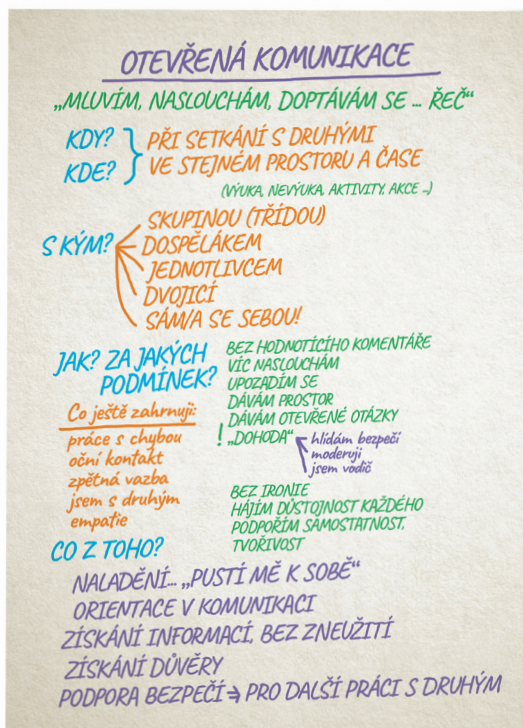 OTEVŘENÁ KOMUNIKACE
„MLUVÍM, NASLOUCHÁM, DOPTÁVÁM SE ... ŘEČ“
KDY?
KDE?
PŘI SETKÁNÍ S DRUHÝMI
VE STEJNÉM PROSTORU A ČASE
(VÝUKA, NEVÝUKA, AKTIVITY, AKCE ...)
S KÝM?
SKUPINOU (TŘÍDOU)
DOSPĚLÁKEM
JEDNOTLIVCEM
DVOJICÍ
SÁM/A SE SEBOU!
JAK? ZA JAKÝCH
PODMÍNEK?
BEZ HODNOTÍCÍHO KOMENTÁŘE
VÍC NASLOUCHÁM
UPOZADÍM SE
DÁVÁM PROSTOR
DÁVÁM OTEVŘENÉ OTÁZKY
! „DOHODA“
hlídám bezpečí
moderuji
jsem vodič
BEZ IRONIE
HÁJÍM DŮSTOJNOST KAŽDÉHO
PODPOŘÍM SAMOSTATNOST,
TVOŘIVOST
Co ještě zahrnuji:
práce s chybou
oční kontakt
zpětná vazba
jsem s druhým
empatie
CO Z TOHO?
NALADĚNÍ... „PUSTÍ MĚ K SOBĚ“
ORIENTACE V KOMUNIKACI
ZÍSKÁNÍ INFORMACÍ, BEZ ZNEUŽITÍ
ZÍSKÁNÍ DŮVĚRY
PODPORA BEZPEČÍ ⇒ PRO DALŠÍ PRÁCI S DRUHÝM